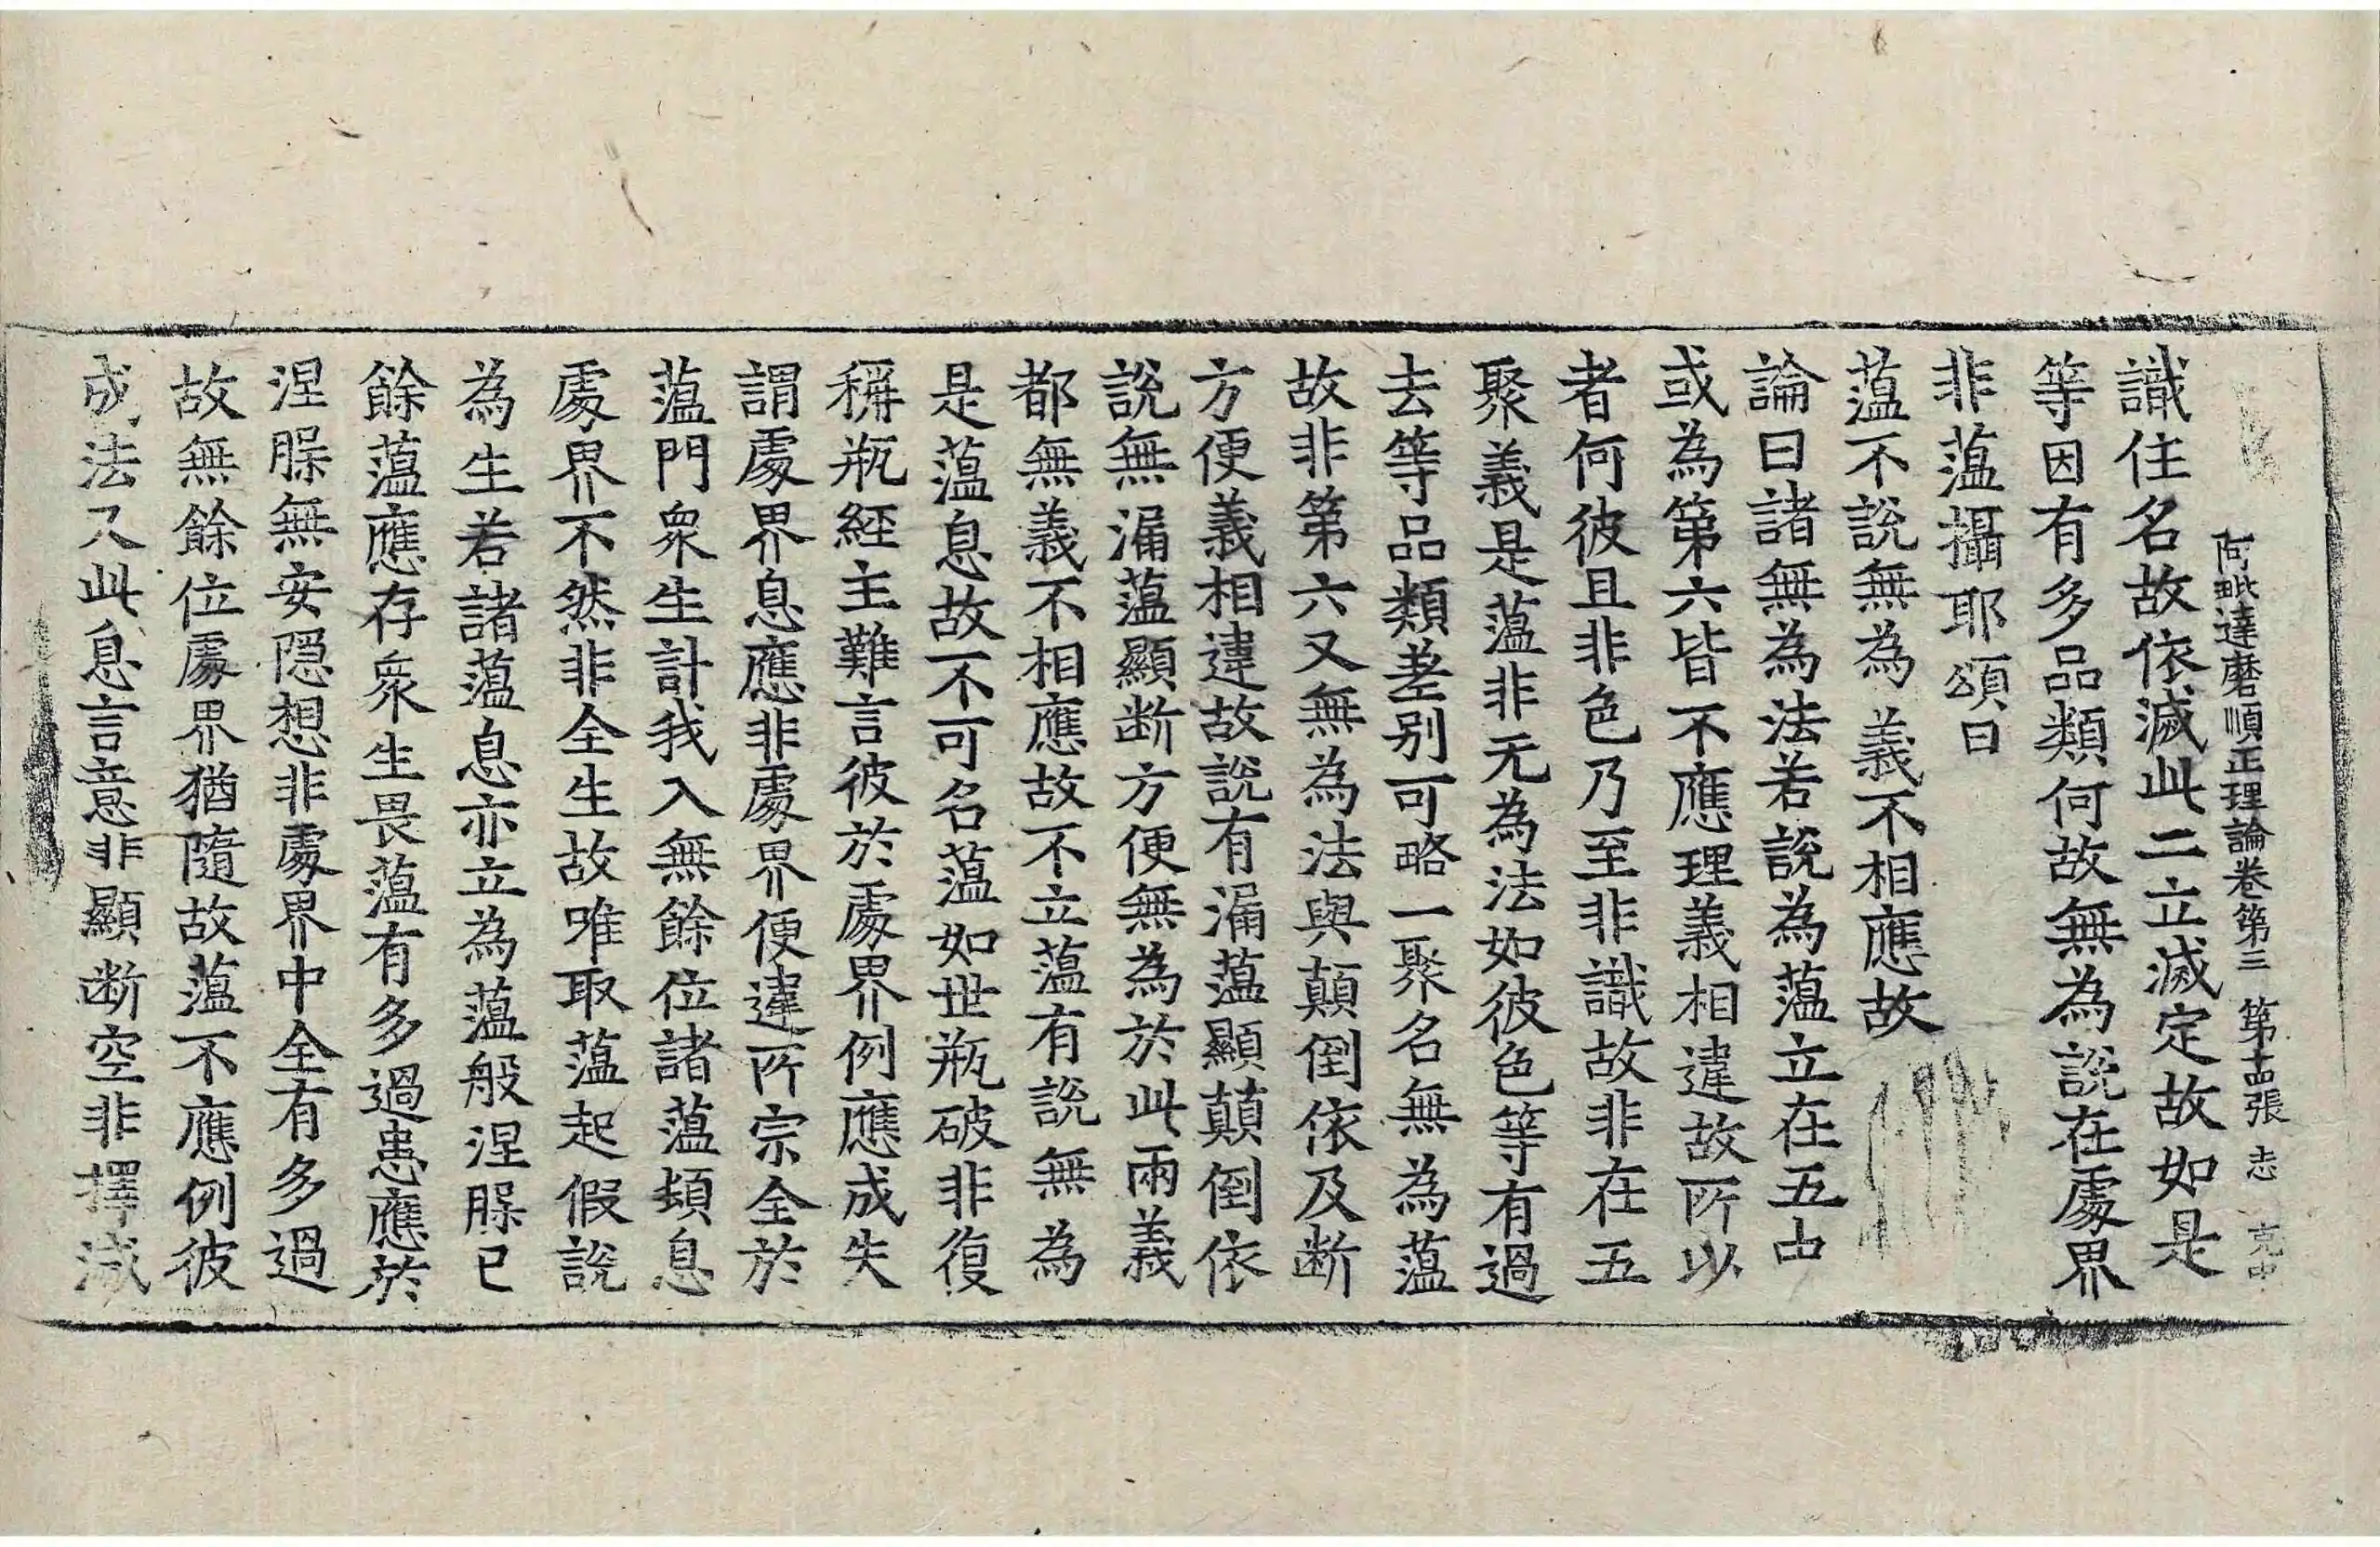 阿毗達磨順正理論卷第三 第十四張 志 克中
識住名故依滅此二立滅定故如是
等因有多品類何故無為說在處界
非薀攝耶頌曰
薀不說無為 義不相應故
論曰諸無為法若說為薀立在五中
或為第六皆不應理義相違故所以
者何彼且非色乃至非識故非在五
聚義是薀非无為法如彼色等有過
去等品類差別可略一聚名無為薀
故非第六又無為法與顛倒依及断
方便義相違故說有漏薀顯顛倒依
說無漏薀顯断方便無為於此兩義
都無義不相應故不立薀有說無為
是薀息故不可名薀如世瓶破非復
稱瓶經主難言彼於處界例應成失
謂處界息應非處界便違所宗全於
薀門衆生計我入無餘位諸薀頓息
處界不然非全生故唯取薀起假說
為生若諸薀息亦立為薀般涅槃已
餘薀應存衆生畏薀有多過患應於
涅槃無安隱想非處界中全有多過
故無餘位處界猶隨故薀不應例彼
成法又此息言意非顯断空非擇滅